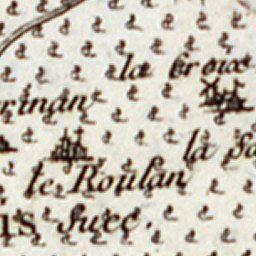 la Croix
rinan
la Sa
le Roulan
is Succ.